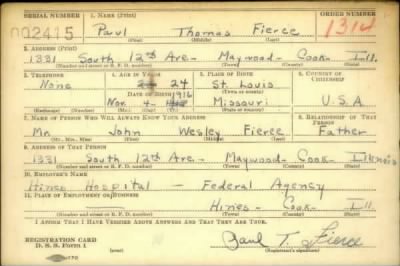 SERIAL NUMBER 1. NAME (Print) ORDER NUMBER
No2415 Paul Thomas Fierce 1314
(First) (Middle) (Last)
2. ADDRESS (Print)
1331 South 12th Ave. - Maywood - Cook - Ill.
(Number and street or R. F. D. number) (Town) (County) (State)
3. TELEPHONE 4. AGE IN YEARS 5. PLACE OF BIRTH 6. COUNTRY OF CITIZENSHIP
None 24 St. Louis
DATE OF BIRTH 1916
Nov. 4 Missouri U.S.A
(Exchange) (Number) (Mo.) (Day) (Yr.) (State or country)
7. NAME OF PERSON WHO WILL ALWAYS KNOW YOUR ADDRESS 8. RELATIONSHIP OF THAT PERSON
Mr. John Wesley Fierce Father
(Mr., Mrs., Miss) (First) (Middle) (Last)
9. ADDRESS OF THAT PERSON
1331 South 12th Ave - Maywood - Cook - Illinois
(Number and street or R. F. D. number) (Town) (County) (State)
10. EMPLOYER'S NAME
Hines Hospital - Federal Agency
11. PLACE OF EMPLOYMENT OR BUSINESS
Hines - Cook - Ill.
(Number and street or R. F. D. number) (Town) (County) (State)
I AFFIRM THAT I HAVE VERIFIED ABOVE ANSWERS AND THAT THEY ARE TRUE.
REGISTRATION CARD
D. S. S. FORM 1 Paul T. Fierce
(Registrant's signature)